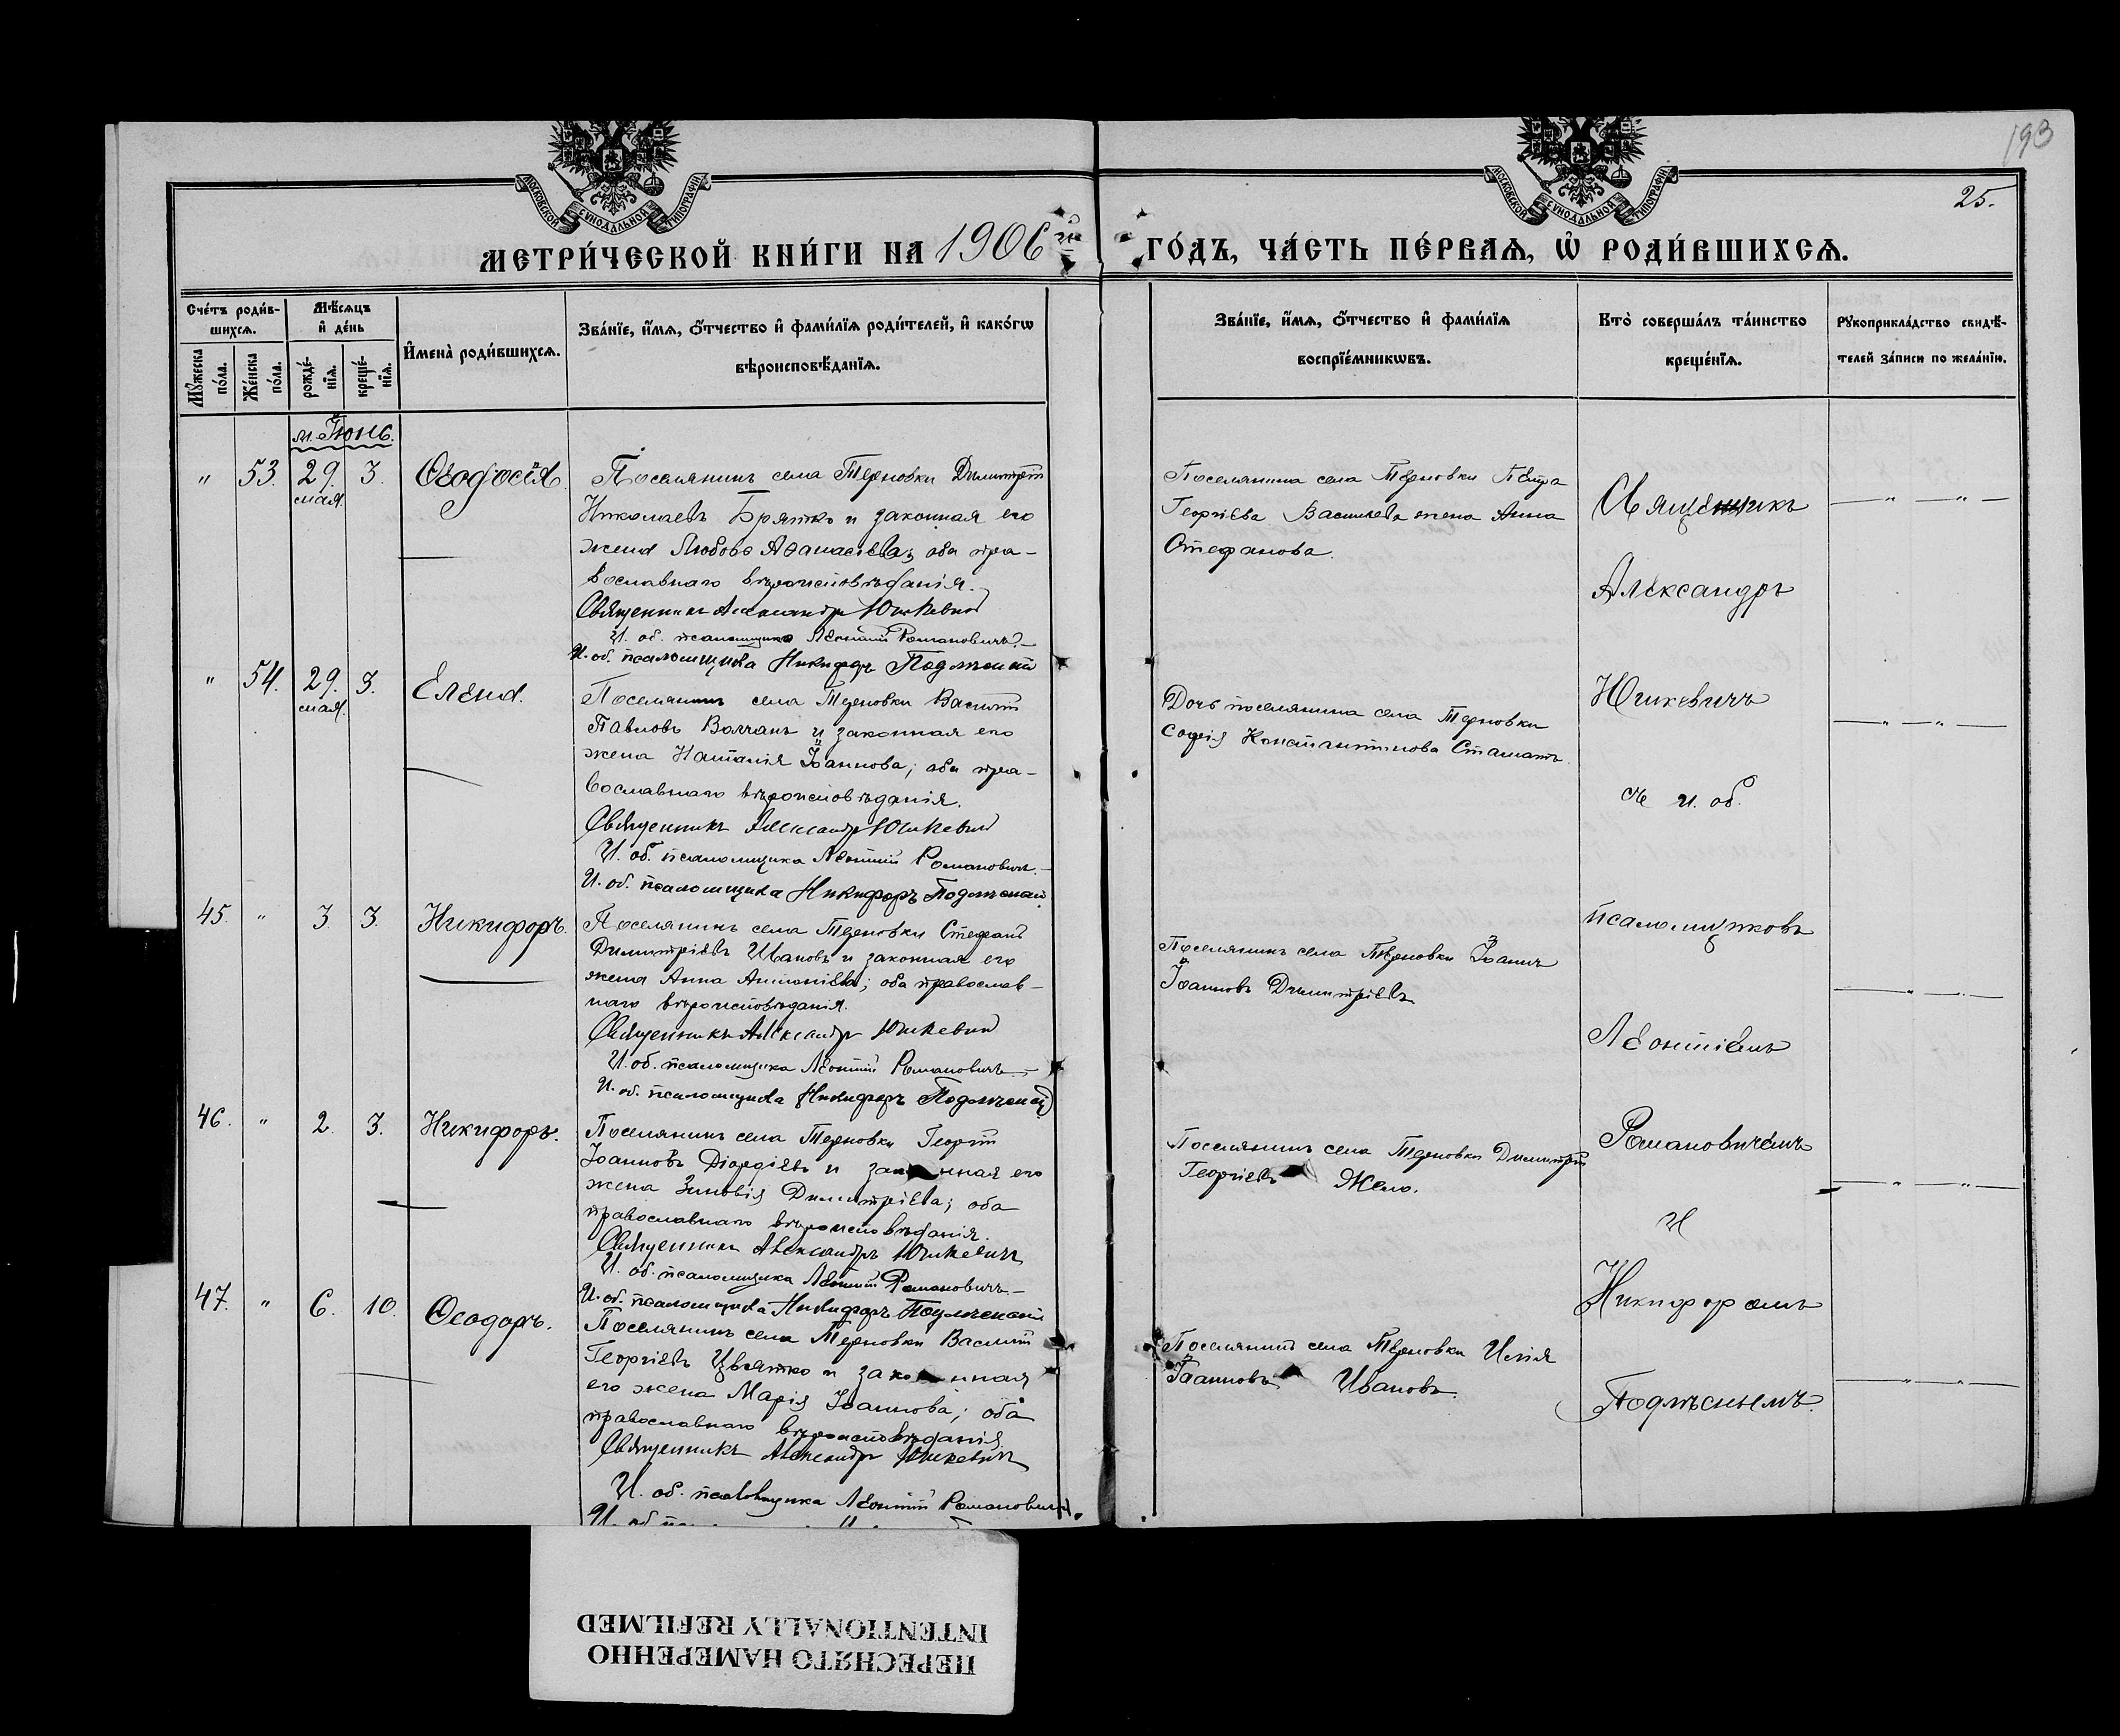 193
25.
МОСКОВСКОЙ СѴНОДАЛЬНОЙ ТИПОГРАФІИ
МОСКОВСКОЙ СѴНОДАЛЬНОЙ ТИПОГРАФІИ
МЕТРИ́ЧЕСКОЙ КНИ́ГИ НА 1906 й ГО́ДЪ, ЧА́СТЬ ПЕ́РВАѦ, Ѡ҆ РОДИ́ВШИХСѦ.
Сче́тъ роди́в-
шихсѧ.
Мꙋ́жеска по́ла.
Же́нска по́ла.
Мѣ́сѧцъ
и҆ де́нь
рожде́-
нїѧ.
креще́-
нїѧ.
И҆мена̀ роди́вшихсѧ.
Зва́нїе, и҆́мѧ, ѻ҆́тчество и҆ фами́лїѧ роди́телей, и҆ како́гѡ
вѣроисповѣ́данїѧ.
Зва́нїе, и҆́мѧ, ѻ҆́тчество и҆ фами́лїѧ
воспрїе́мникѡвъ.
Кто̀ соверша́лъ та́инство
креще́нїѧ.
Рꙋкоприкла́дство свидѣ́-
телей за́писи по жела́нїю.
м. Іюнь.
" 53. 29. мая. 3. Ѳеодосія.
Поселянинъ села Терновки Димитрій
Николаевъ Брятко и законная его
жена Любовь Аѳанасіева; оба пра-
вославнаго вѣроисповѣданія.
Священникъ Александръ Юшкевич
И. об. псаломщика Леонтій Романовичъ.
И. об. псаломщика Никифоръ Подлѣсный
Поселянина села Терновки Петра
Георгіева Васильева жена Анна
Стефанова.
" 54. 29. мая. 3. Елена.
Поселянинъ села Терновки Василій
Павловъ Волчанъ и законная его
жена Наталія Іоаннова; оба пра-
вославнаго вѣроисповѣданія.
Священникъ Александръ Юшкевич
И. об. псаломщика Леонтій Романовичъ.
И. об. псаломщика Никифоръ Подлѣсный
Дочь поселянина села Терновки
Софія Константинова Стаматъ.
45. " 3 3. Никифоръ.
Поселянинъ села Терновки Стефанъ
Димитріевъ Ивановъ и законная его
жена Анна Антоніева; оба православ-
наго вѣроисповѣданія.
Священникъ Александръ Юшкевич
И. об. псаломщика Леонтій Романовичъ
И. об. псаломщика Никифоръ Подлѣсный
Поселянинъ села Терновки Іоаннъ
Іоанновъ Димитріевъ
46. " 2. 3. Никифоръ.
Поселянинъ села Терновки Георгій
Іоанновъ Діордіевъ и законная его
жена Зиновія Димитріева; оба
православнаго вѣроисповѣданія.
Священникъ Александръ Юшкевичъ
И. об. псаломщика Леонтій Романовичъ
И. об. псаломщика Никифоръ Подлѣсный
Поселянинъ села Терновки Димитрій
Георгіевъ Жело.
47. " 6. 10. Ѳеодоръ.
Поселянинъ села Терновки Василій
Георгіевъ Цвятко и законная
его жена Марія Іоаннова; оба
православнаго вѣроисповѣданія
Священникъ Александръ Юшкевичъ
И. об. псаломщика Леонтій Романовичъ
Поселянинъ села Терновки Илія
Іоанновъ Ивановъ.
Священникъ
Александръ
Юшкевичъ
съ и. об.
псаломщиковъ
Леонтіемъ
Романовичемъ
и
Никифоромъ
Подлѣснымъ.
ПЕРЕСНЯТО НАМЕРЕННО
INTENTIONALLY REFILMED